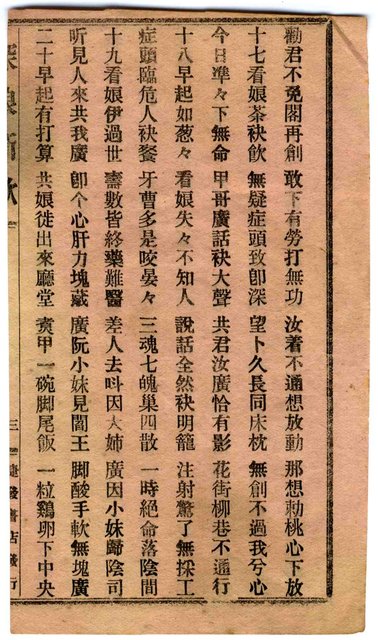 勸君不免閣再創 敢下有勞打無功 汝着不通想放動 那想勅桃心下放
十七看娘茶袂飲 無疑症頭致卽深 望卜久長同床枕 無創不過我兮心
今日準々下無命 甲哥廣話袂大聲 共君汝廣恰有影 花街柳巷不通行
十八早起如葱々 看娘失々不知人 說話全然袂明籠 注射驚了無採工
症頭臨危人袂餮 牙曹多是咬晏々 三魂七魄巢四散 一時絕命落陰間
十九看娘伊過世 壽數皆終藥難醫 差人去呌因大姉 廣因小妹歸陰司
听見人來共我廣 卽个心肝力塊藏 廣阮小妹見閻王 脚酸手軟無塊廣
二十早起有打算 共娘徙出來廳堂 煑甲一碗脚尾飯 一粒鷄卵下中央
三 捷發書店發行